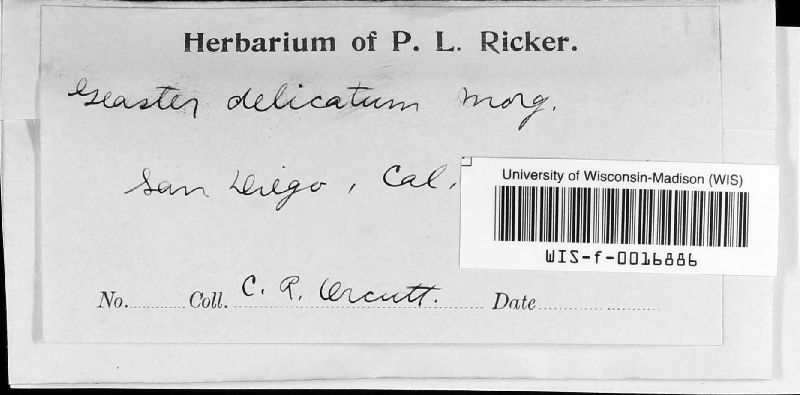 Herbarium of P. L. Ricker.
Geaster delicatum Morg.
San Diego, Cal.
University of Wisconsin-Madison (WIS)
WIS-f-0016886
No. Coll. C. R. Orcutt. Date